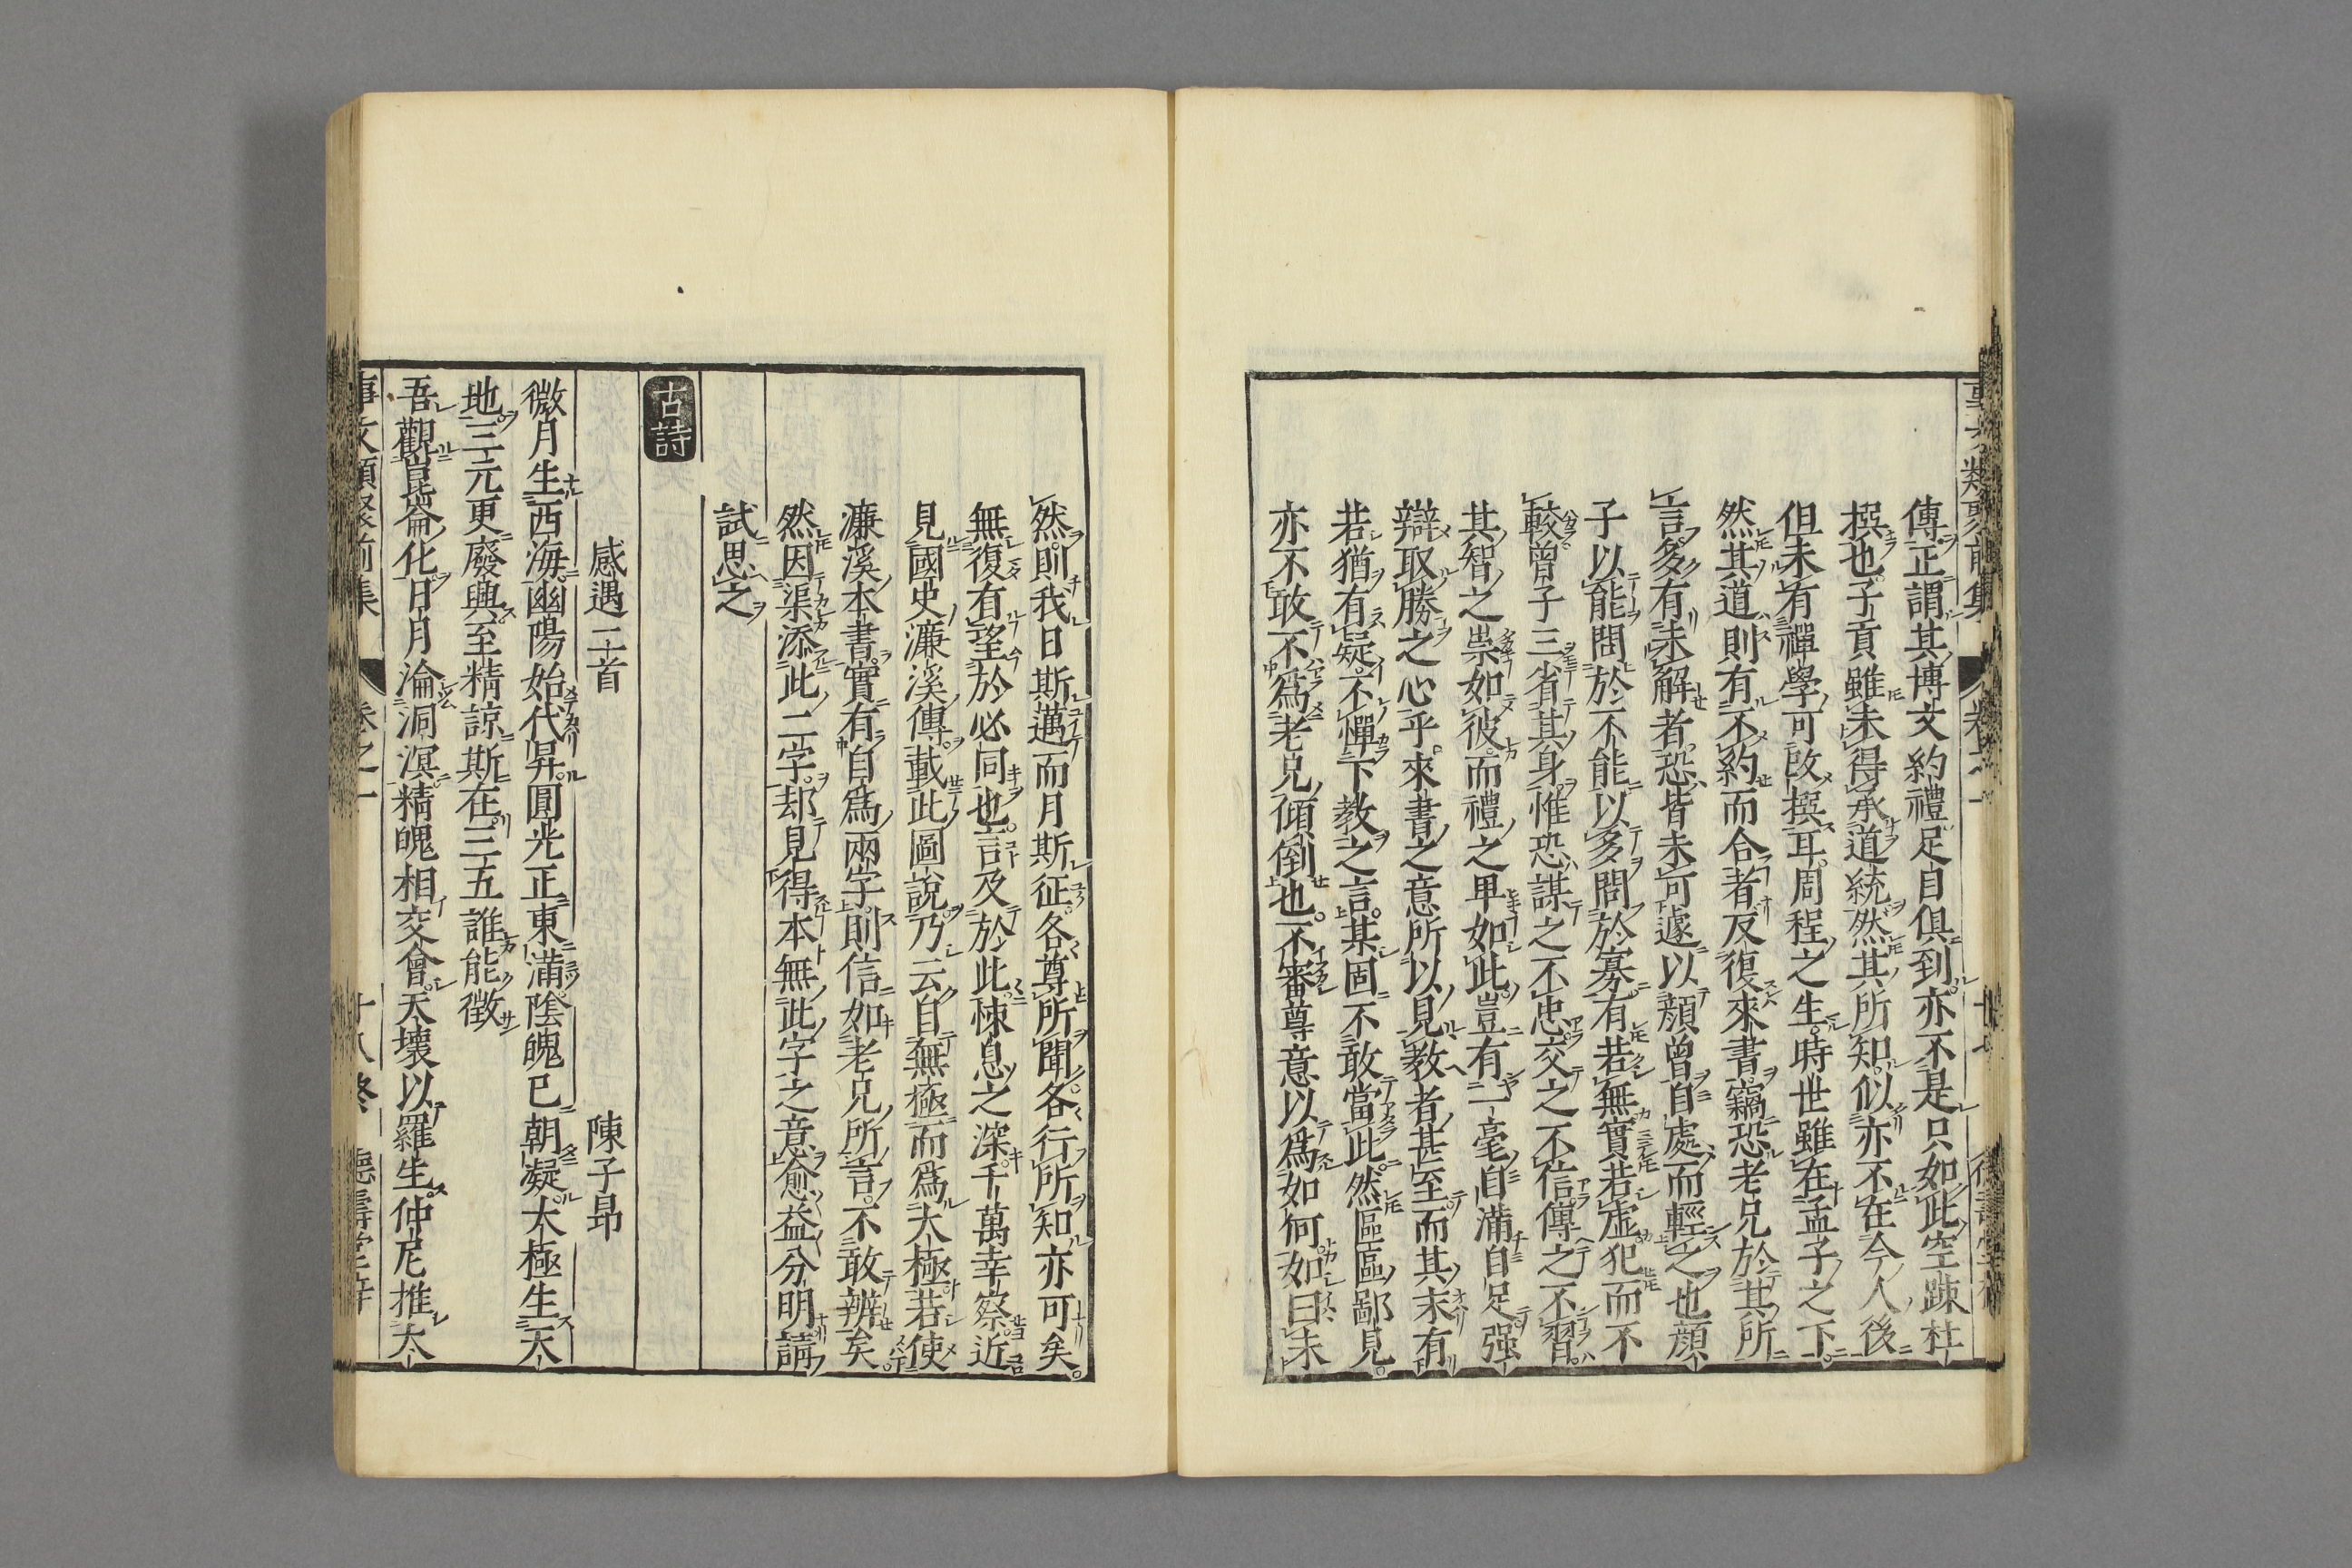 傳正謂其博文約禮足自俱到亦不是只如此空踈杜
撰也子貢雖未得承道統然其所知似亦不在今人後
但未有禪學可改撰耳周程之生時世雖在孟子之下
然其道則有不約而合者反復來書竊恐老兄於其所
言多有未解者恐皆未可遽以顏曾自處而輕之也顏
子以能問於不能以多問於寡有若無實若虛犯而不
較曾子三省其身惟恐謀之不忠交之不信傳之不習
其智之崇如彼而禮之卑如此豈有一毫自滿自足强
辯取勝之心乎來書之意所以見教者甚至而其末有
若猶有疑不憚下教之言某固不敢當此然區區鄙見
亦不敢不爲老兄傾倒也不審尊意以爲如何如曰未
然則我日斯邁而月斯征各尊所聞各行所知亦可矣
無復有望於必同也言及於此悚息之深千萬幸察近
見國史濂溪傳載此圖說乃云自無極而爲太極若使
濂溪本書實有自爲兩字則信如老兄所言不敢辨矣
然因渠添此二字却見得本無此字之意愈益分明請
試思之
古詩
感遇二首 陳子昻
微月生西海幽陽始代昇圓光正東滿陰魄已朝凝太極生天
地三元更廢興至精諒斯在三五誰能徵
吾觀崑崙化日月淪洞溟精魄相交會天壤以羅生仲尼推太
事文類聚前集 卷之一 十八終